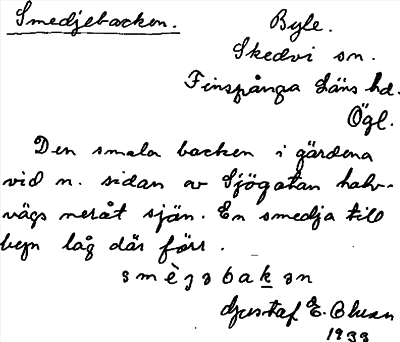 Smedjebacken. Byle.
Skedvi sn.
Finspånga Läns hd.
Ögl.
Den smala backen i gärdena
vid n. sidan av Sjögatan halv-
vägs neråt sjön. En smedja till
byn låg där förr.
Gustaf E.
1933